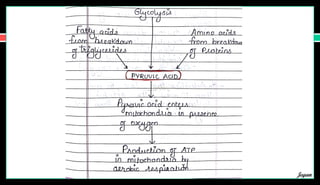 Glycolysis
Fatty acids
from breakdown
of triglycerides
Amino acids
from breakdown
of Proteins
PYRUVIC ACID
Pyruvic acid enters
mitochondria in presence
of oxygen
Production of ATP
in mitochondria by
aerobic respiration